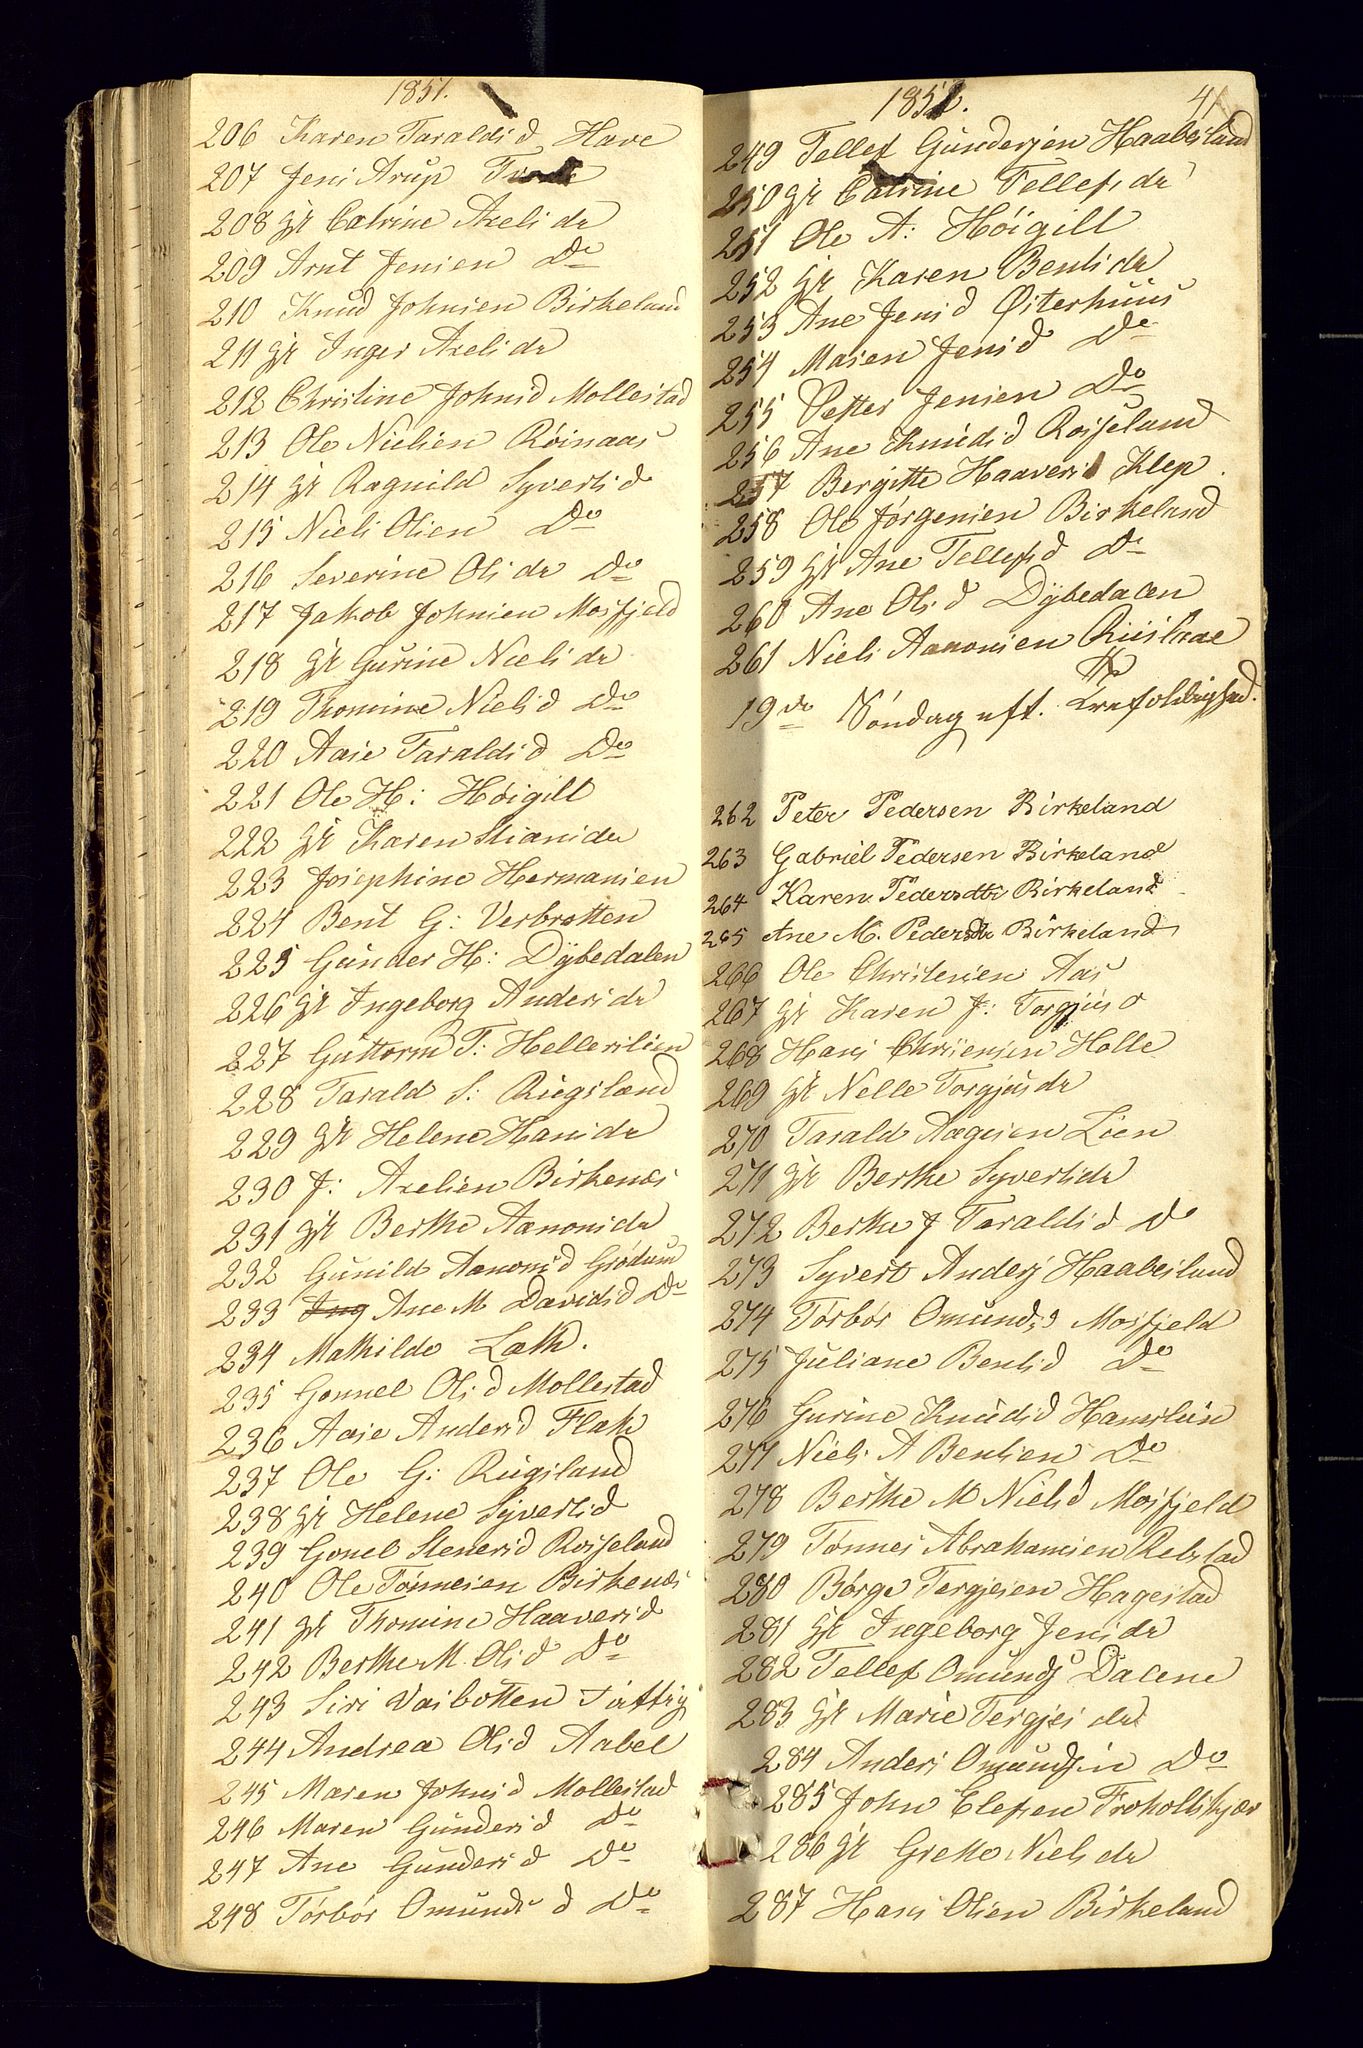 1851.
206 Karen Taraldsd. Have
207 Jens Arup
208 gr Catrine Axelsdr
209 Arnt Jensen Do
210 Knud Johnsen Birkeland
211 gr Inger Axelsdr
212 Christine Johnsd Mollestad
213 Ole Nielsen Röinaas
214 gr Ragnild Syvertsd
215 Niels Olsen Do
216 Severine Olsdr Do
217 Jakob Johnsen Mosfjeld
218 gr Gurine Nielsdr
219 Thomine Nielsd Do
220 Aase Taraldsd Do
221 Ole H: Höigilt
222 gr Karen Stiansdr
223 Josephine Hermansen
224 Bent G: Verbrotten
225 Gunder H: Dybedalen
226 gr Ingeborg Andersdr
227 Guttorm T: Hellerslien
228 Tarald S: Rugsland
229 gr Helene Hansdr
230 J: Axelsen Birkenæs
231 gr Berthe Aanonsdr
232 Gunild Aanonsd Grödum
233 Ane M Davidsd Do
234 Mathilde Læth.
235 Gonnel Olsd Mollestad
236 Aase Andersd Flak
237 Ole G: Rugsland
238 gr Helene Syvertsd
239 Gonel Stenersd Rosseland
240 Ole Tönnesen Birkenæs
241 gr Thomine Haaversd
242 Berthe M. Olsd Do
243 Siri Vaibotten
244 Andrea Olsd Aabel
245 Maren Johnsd Mollestad
246 Maren Gundersd Do
247 Ane Gundersd Do
248 Törbör Omundsd Do
1852. 41
249 Tellef Gundersen Haabesland
250 gr Catrine Tellefsdr
251 Ole A: Höigilt
252 gr Karen Bentsdr
253 Ane Jensd Østerhuus
254 Maren Jensd Do
255 Petter Jensen Do
256 Ane Knudsd Rosseland
257 Bergitte Haavers Klep.
258 Ole Jörgensen Birkeland
259 gr Ane Tellefsd Do
260 Ane Olsd Dybedalen
261 Niels Aanonsen
19de Söndag eft. Trefoldighed.
262 Peter Pedersen Birkeland
263 Gabriel Pedersen Birkeland
264 Karen Pedersdtr Birkeland
265 Ane M. Pedersdr Birkeland
266 Ole Christensen Aas
267 gr Karen J: Torgjus d
268 Hans Chrisensen Holle
269 gr Nelle Torgjusdr
270 Tarald Aagesen Lien
271 gr Berthe Syvertsdr
272 Berthe J Taraldsd Do
273 Syvert Anders Haabesland
274 Törbör Omundsd Mosfjeld
275 Juliane Bentsd Do
276 Gurine Knudsd Hamslien
277 Niels A Bentsen Do
278 Berthe M Nielsd Mosfjeld
279 Tönnes Abrahamsen Retstad
280 Börge Tergjesen Hagestad
281 gr Ingeborg Jensdr
282 Tellef Omunds Dalene
283 gr Marie Tergjesdr
284 Anders Omundsen Do
285 John Elefsen Froholtskjær
286 gr Grethe Nielsdr
287 Hans Olsen Birkeland